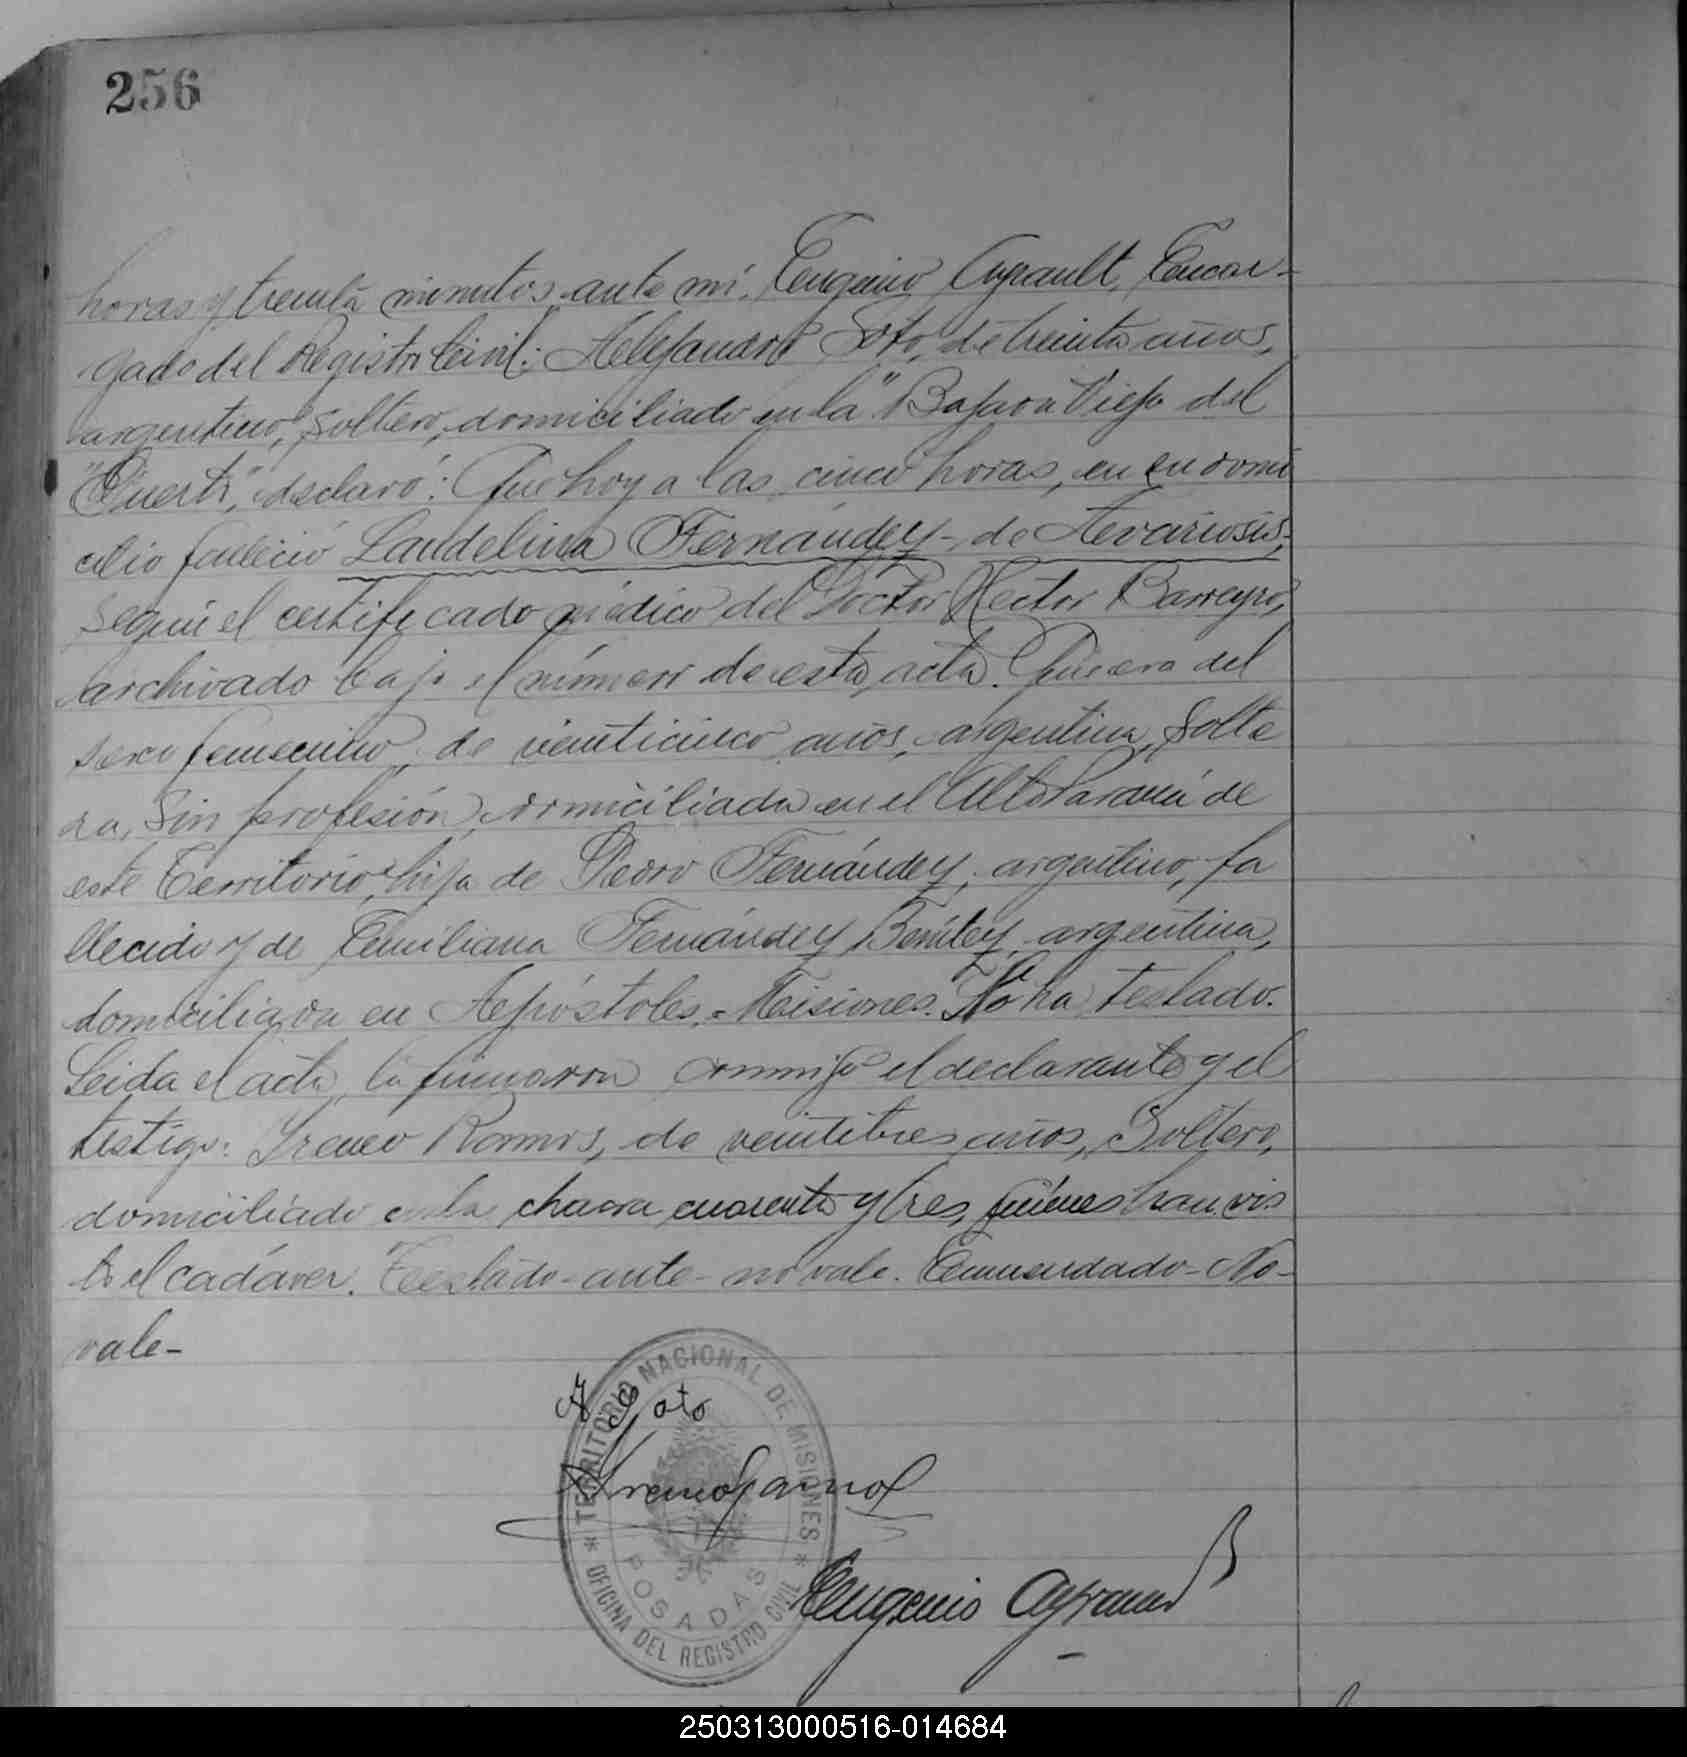 256
horas y treinta minutos, ante mí, Eugenio Ayrault, Encar-
gado del Registro Civil: Alejandro Soto, de treinta años,
argentino, soltero, domiciliado en la "Bajada Vieja del
"Puerto", declaró: Que hoy a las cinco horas, en su domi
cilio falleció Laudelina Fernández - de
según el certificado médico del Doctor Hector Barreyro,
archivado bajo el número de esta acta. Que era del
sexo femenino, de veinticinco años, argentina, solte
ra, sin profesión, domiciliada en el Alto Paraná de
este Territorio, hija de Pedro Fernández, argentino, fa
llecido y de Emiliana Fernández Benítez, argentina,
domiciliada en Apóstoles - Misiones. No ha testado.
Leida el acta, la firmaron conmigo el declarante y el
testigo: Ireneo Ramos, de veintitres años, soltero,
domiciliado en la chacra cuarenta y tres, quienes han vis
to el cadáver. Testado - ante - no vale. Enmendado - No -
vale -
A Soto
Ireneo Ramos
Eugenio Ayrault
TERRITORIO NACIONAL DE MISIONES
* OFICINA DEL REGISTRO CIVIL *
POSADAS
250313000516-014684